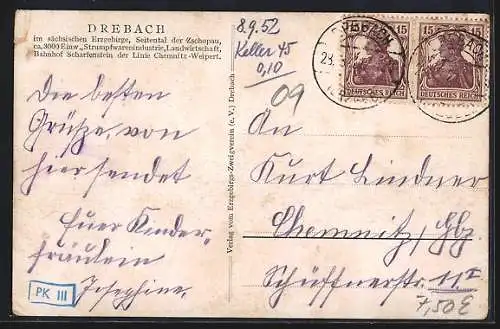 DREBACH
im sächsischen Erzgebirge, Seitental der Zschopau,
ca. 3000 Einw., Strumpfwarenindustrie, Landwirtschaft,
Bahnhof Scharfenstein der Linie Chemnitz-Weipert.
8.9.52
Keller 45
0,10
09
15 15
DEUTSCHES REICH DEUTSCHES REICH
Die besten
Grüsze von
hier sendet
Euer Kinder-
fräulein
Josephine.
PK III
Verlag vom Erzgebirgs-Zweigverein (e. V.) Drebach
An
Kurt Lindner
Chemnitz,
Schüffnerstr. 11
7,50 €